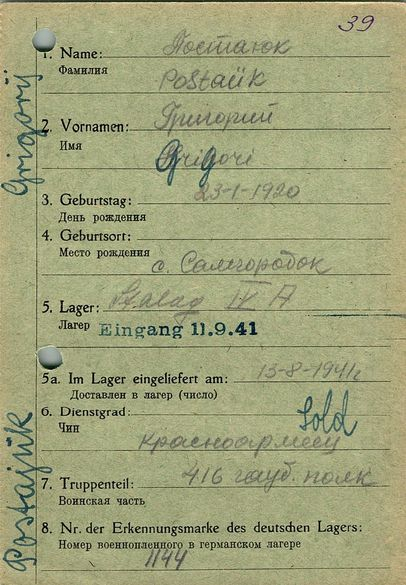 39
1. Name: Постаюк
Фамилия
Postaük
2. Vornamen: Григорий
Имя
Grigori
3. Geburtstag: 23-1-1920
День рождения
4. Geburtsort:
Место рождения
с. Самгородок
5. Lager: Stalag IV A
Лагер Eingang 11.9.41
5a. Im Lager eingeliefert am: 13-8-1941г
Доставлен в лагер (число)
6. Dienstgrad: Sold
Чин
Красноармеец
7. Truppenteil: 416 гауб. полк
Воинская часть
8. Nr. der Erkennungsmarke des deutschen Lagers:
Номер военнопленного в германском лагере
1144
Grigorij
Postajük